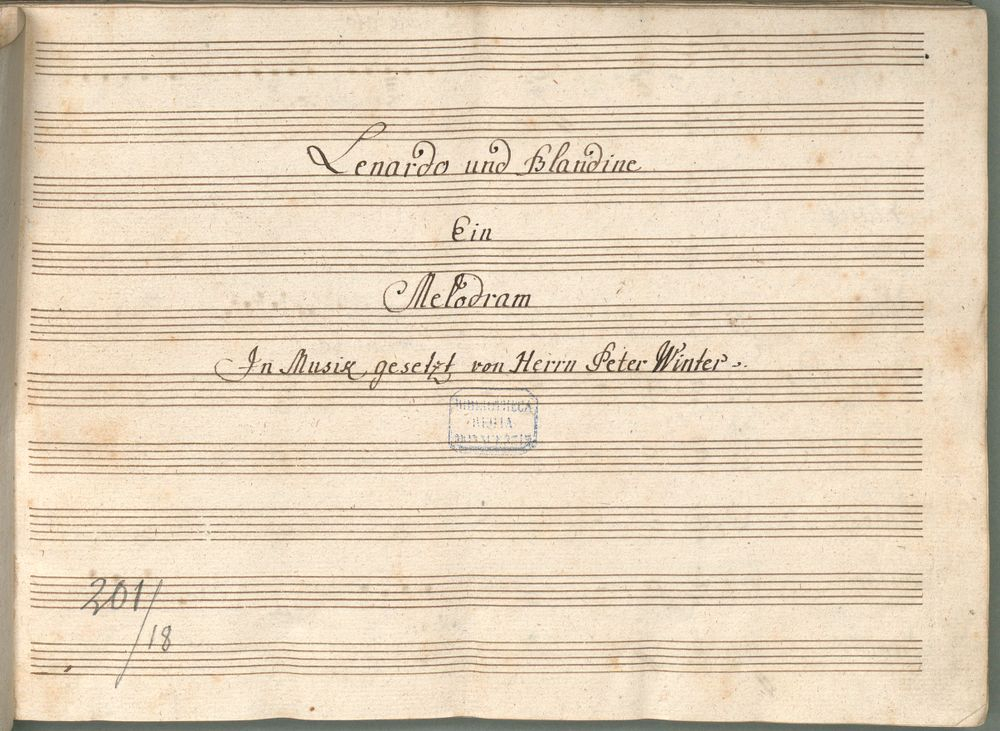 Lenardo und Blandine
Ein
Melodram
In Musik gesetzt von Herrn Peter Winter.
BIBLIOTHECA
REGIA
MONACENSIS
201/
18